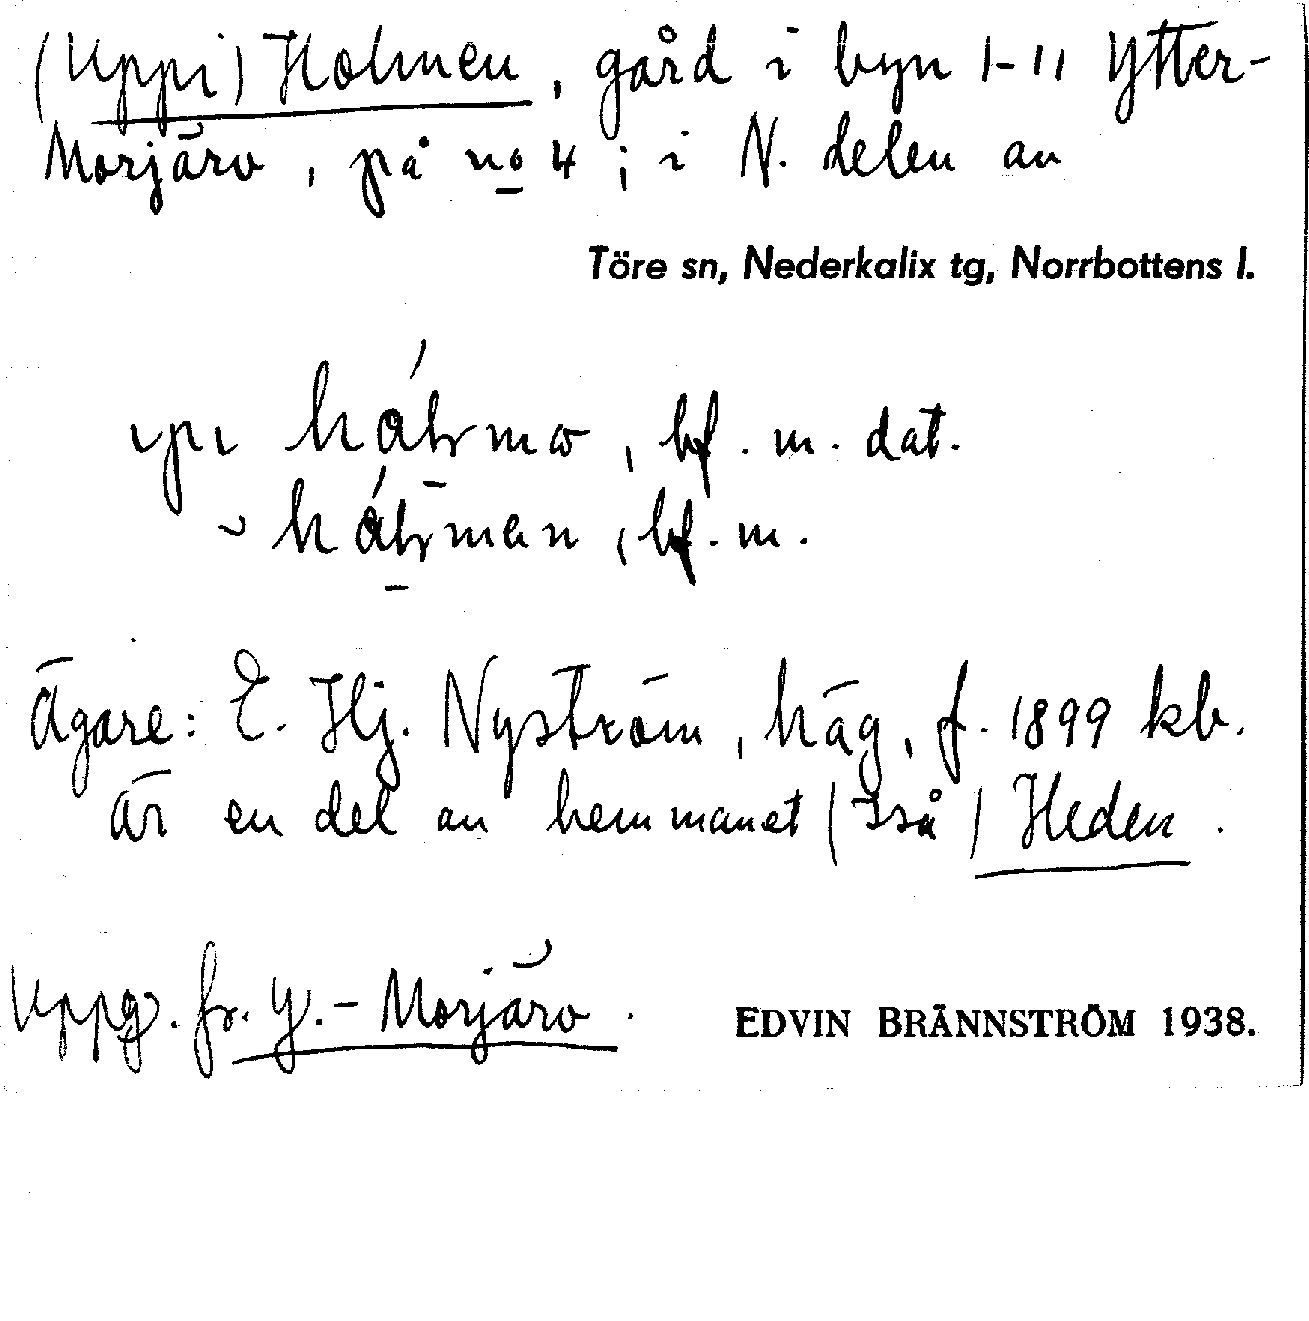 (Uppi) Holmen, gård i byn 1-11 Ytter-
Morjärv, på no 4; i N. delen av
Töre sn, Nederkalix tg, Norrbottens l.
bf. m. dat.
bf. m.
Ägare: E. Hj. Nyström, häg, f. 1899 kb.
Är en del av hemmanet (Iså) Heden.
Uppg. fr. Y.-Morjärv.
EDVIN BRÄNNSTRÖM 1938.